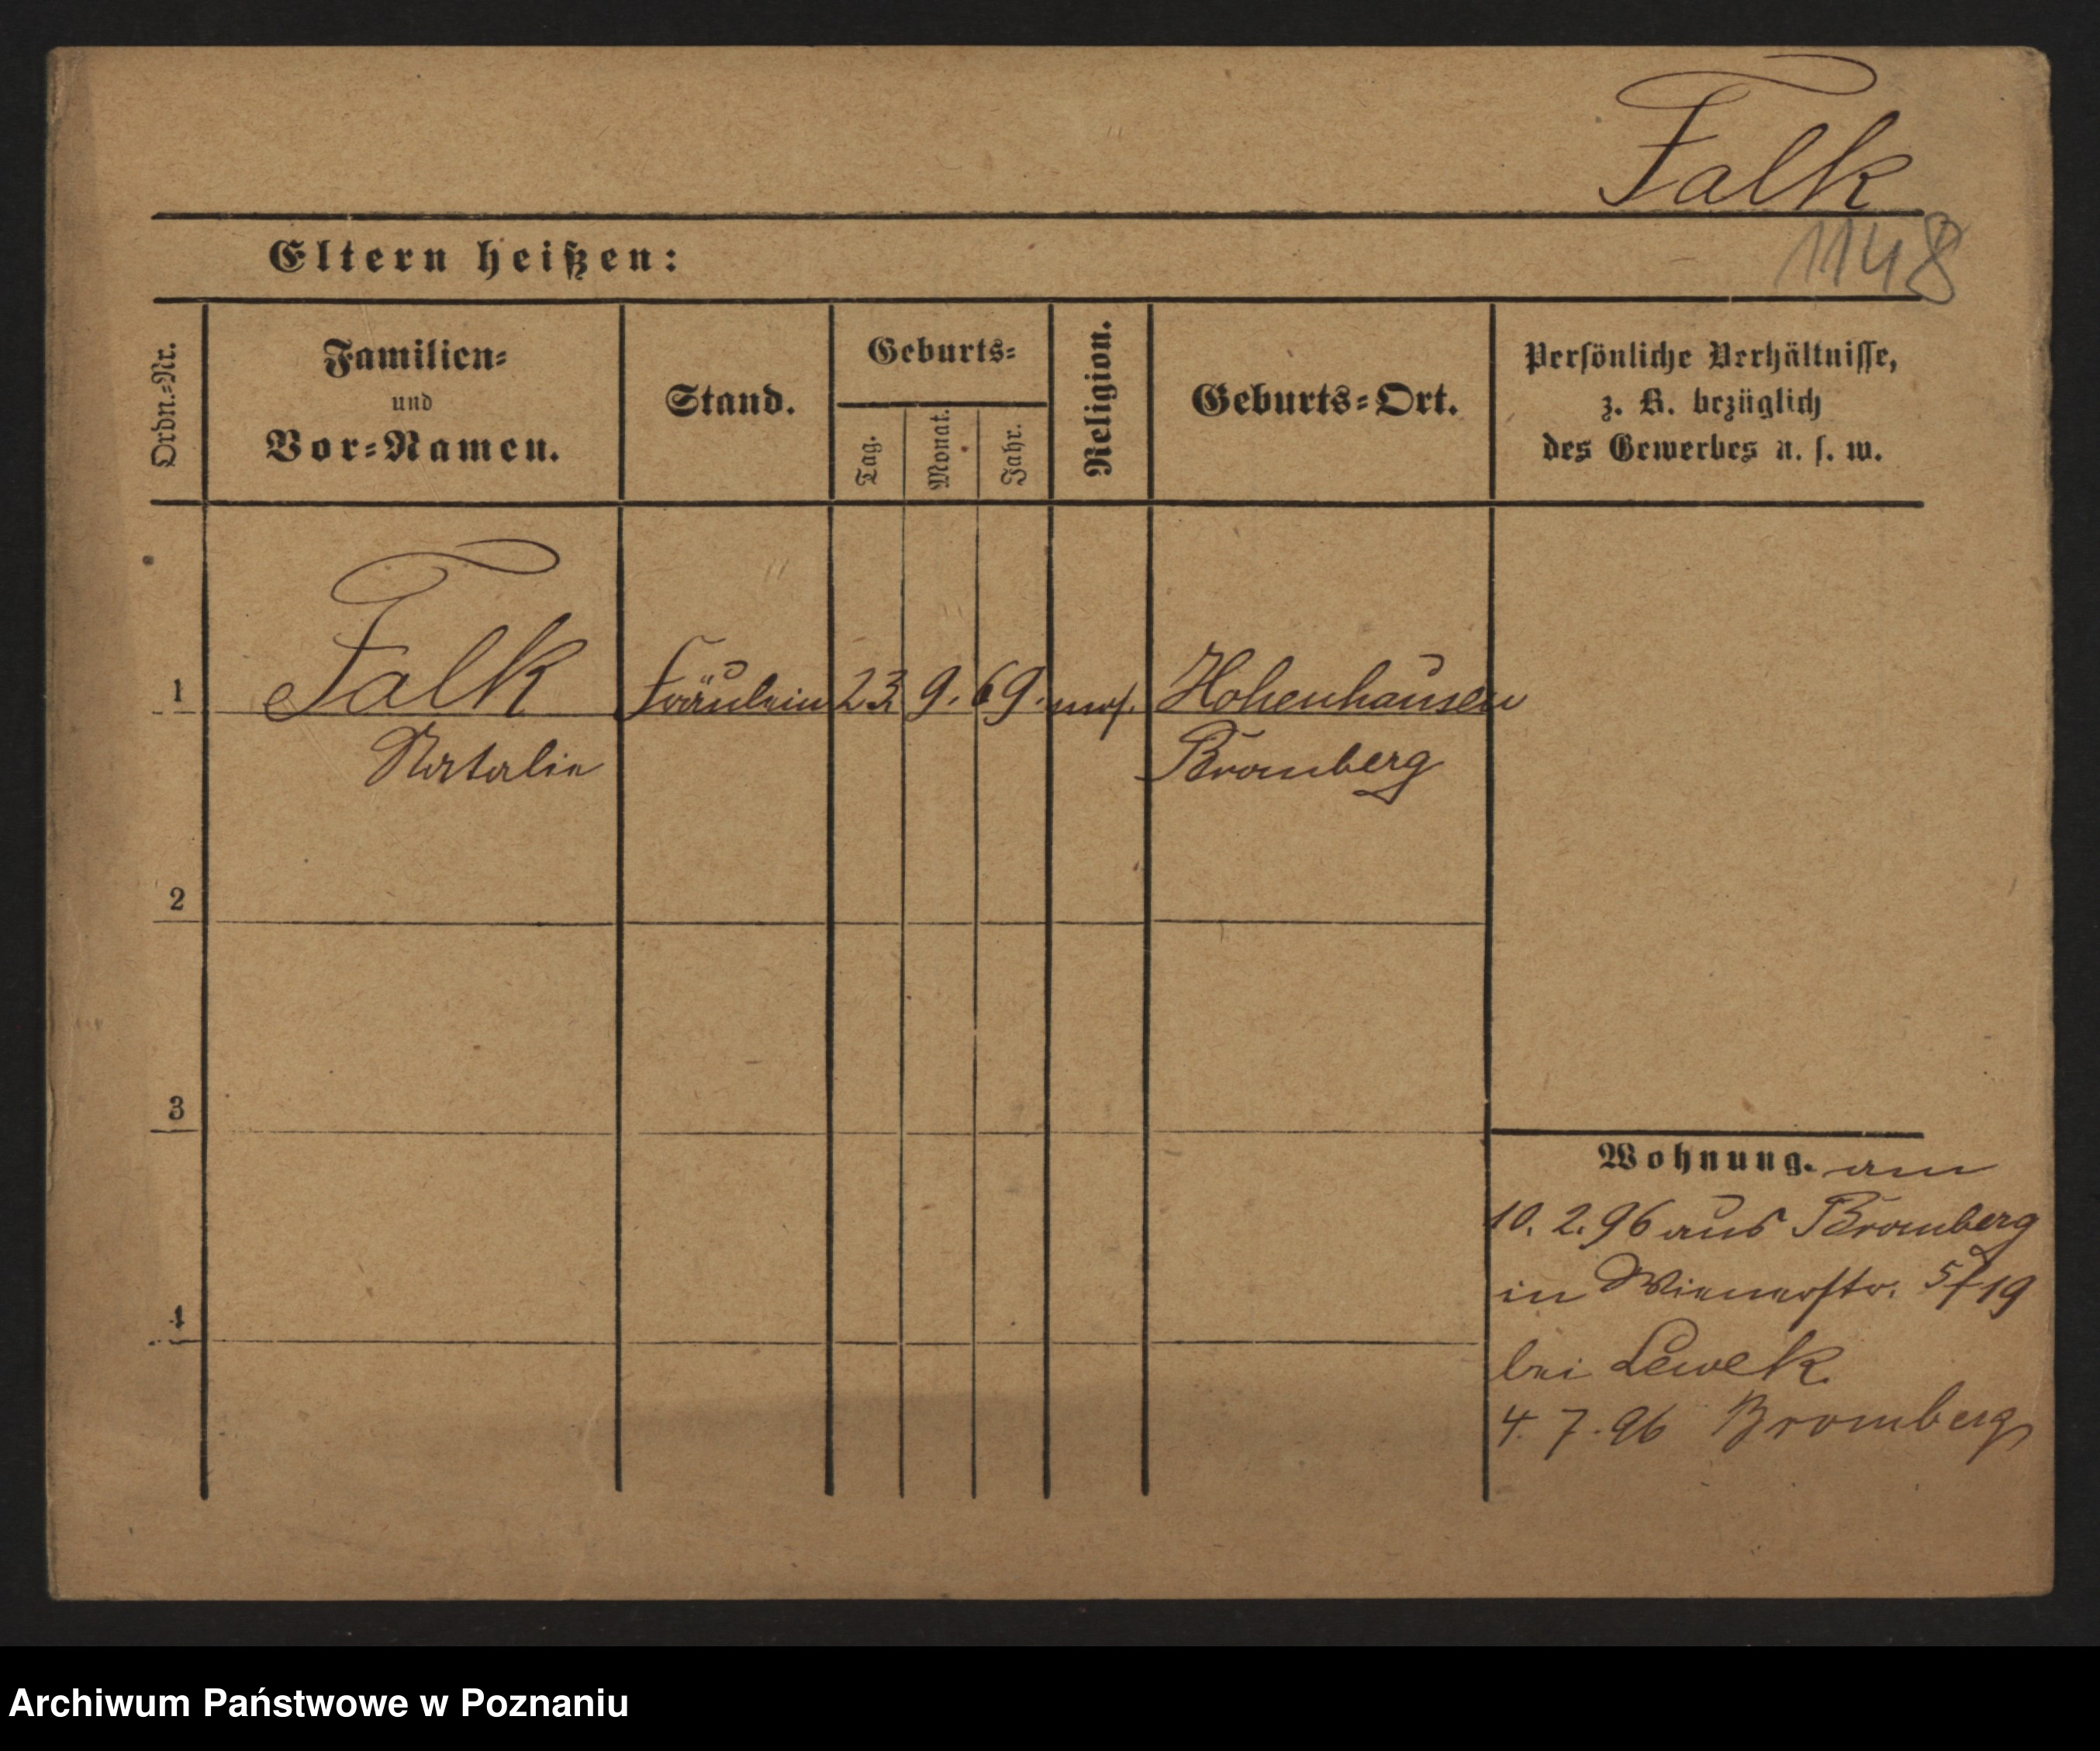 Falk
1148
Eltern heißen:
Ordn.-Nr.
Familien-
und
Vor-Namen.
Stand.
Geburts-
Tag.
Monat.
Jahr.
Religion.
Geburts-Ort.
Persönliche Verhältnisse,
z. B. bezüglich
des Gewerbes u. s. w.
1 Falk Fräulein 23 9. 69. mos. Hohenhausen
Natalie Bromberg
2
3
Wohnung. am
10. 2. 96 aus Bromberg
in Wienerstr. 5/19
bei Lewek
4
4. 7. 96 Bromberg
Archiwum Państwowe w Poznaniu